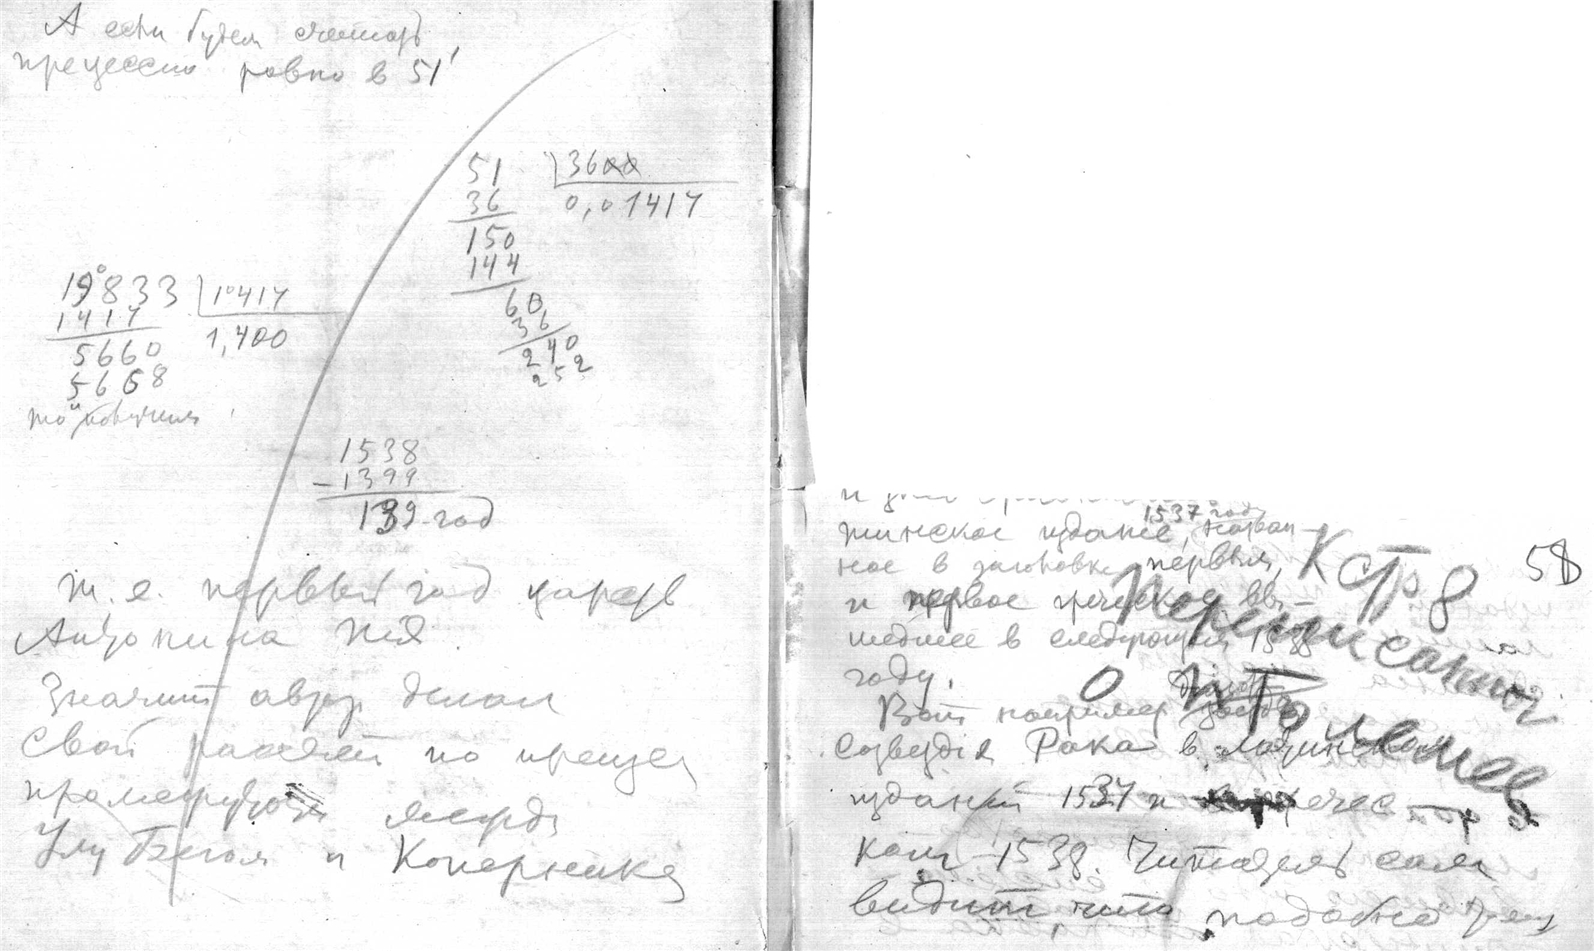 А если будем считать
прецессию ровно в 51'
51 36хх
36 0,01417
150
144
60
36
240
252
19°833 1°417
1417 1,400
5660
5668
то
1538
-1399
139 год
т. е. первый год царств
Антонина Пія
Значит автор делал
свой расчет по прецес
промежуток между
Улу Бегом и Коперника
1537 год
тинское издание, назван-
ное в заголовке первым,
и первое греческое вы-
шедшее в следующем 1538
году.
Вот например звезды
созвездія Рака в латинском
изданіи 1537 и гречес
ком 1538. Читатель сам
видит, что подобная
К стр 8 58
Переписанное
о Птолемее